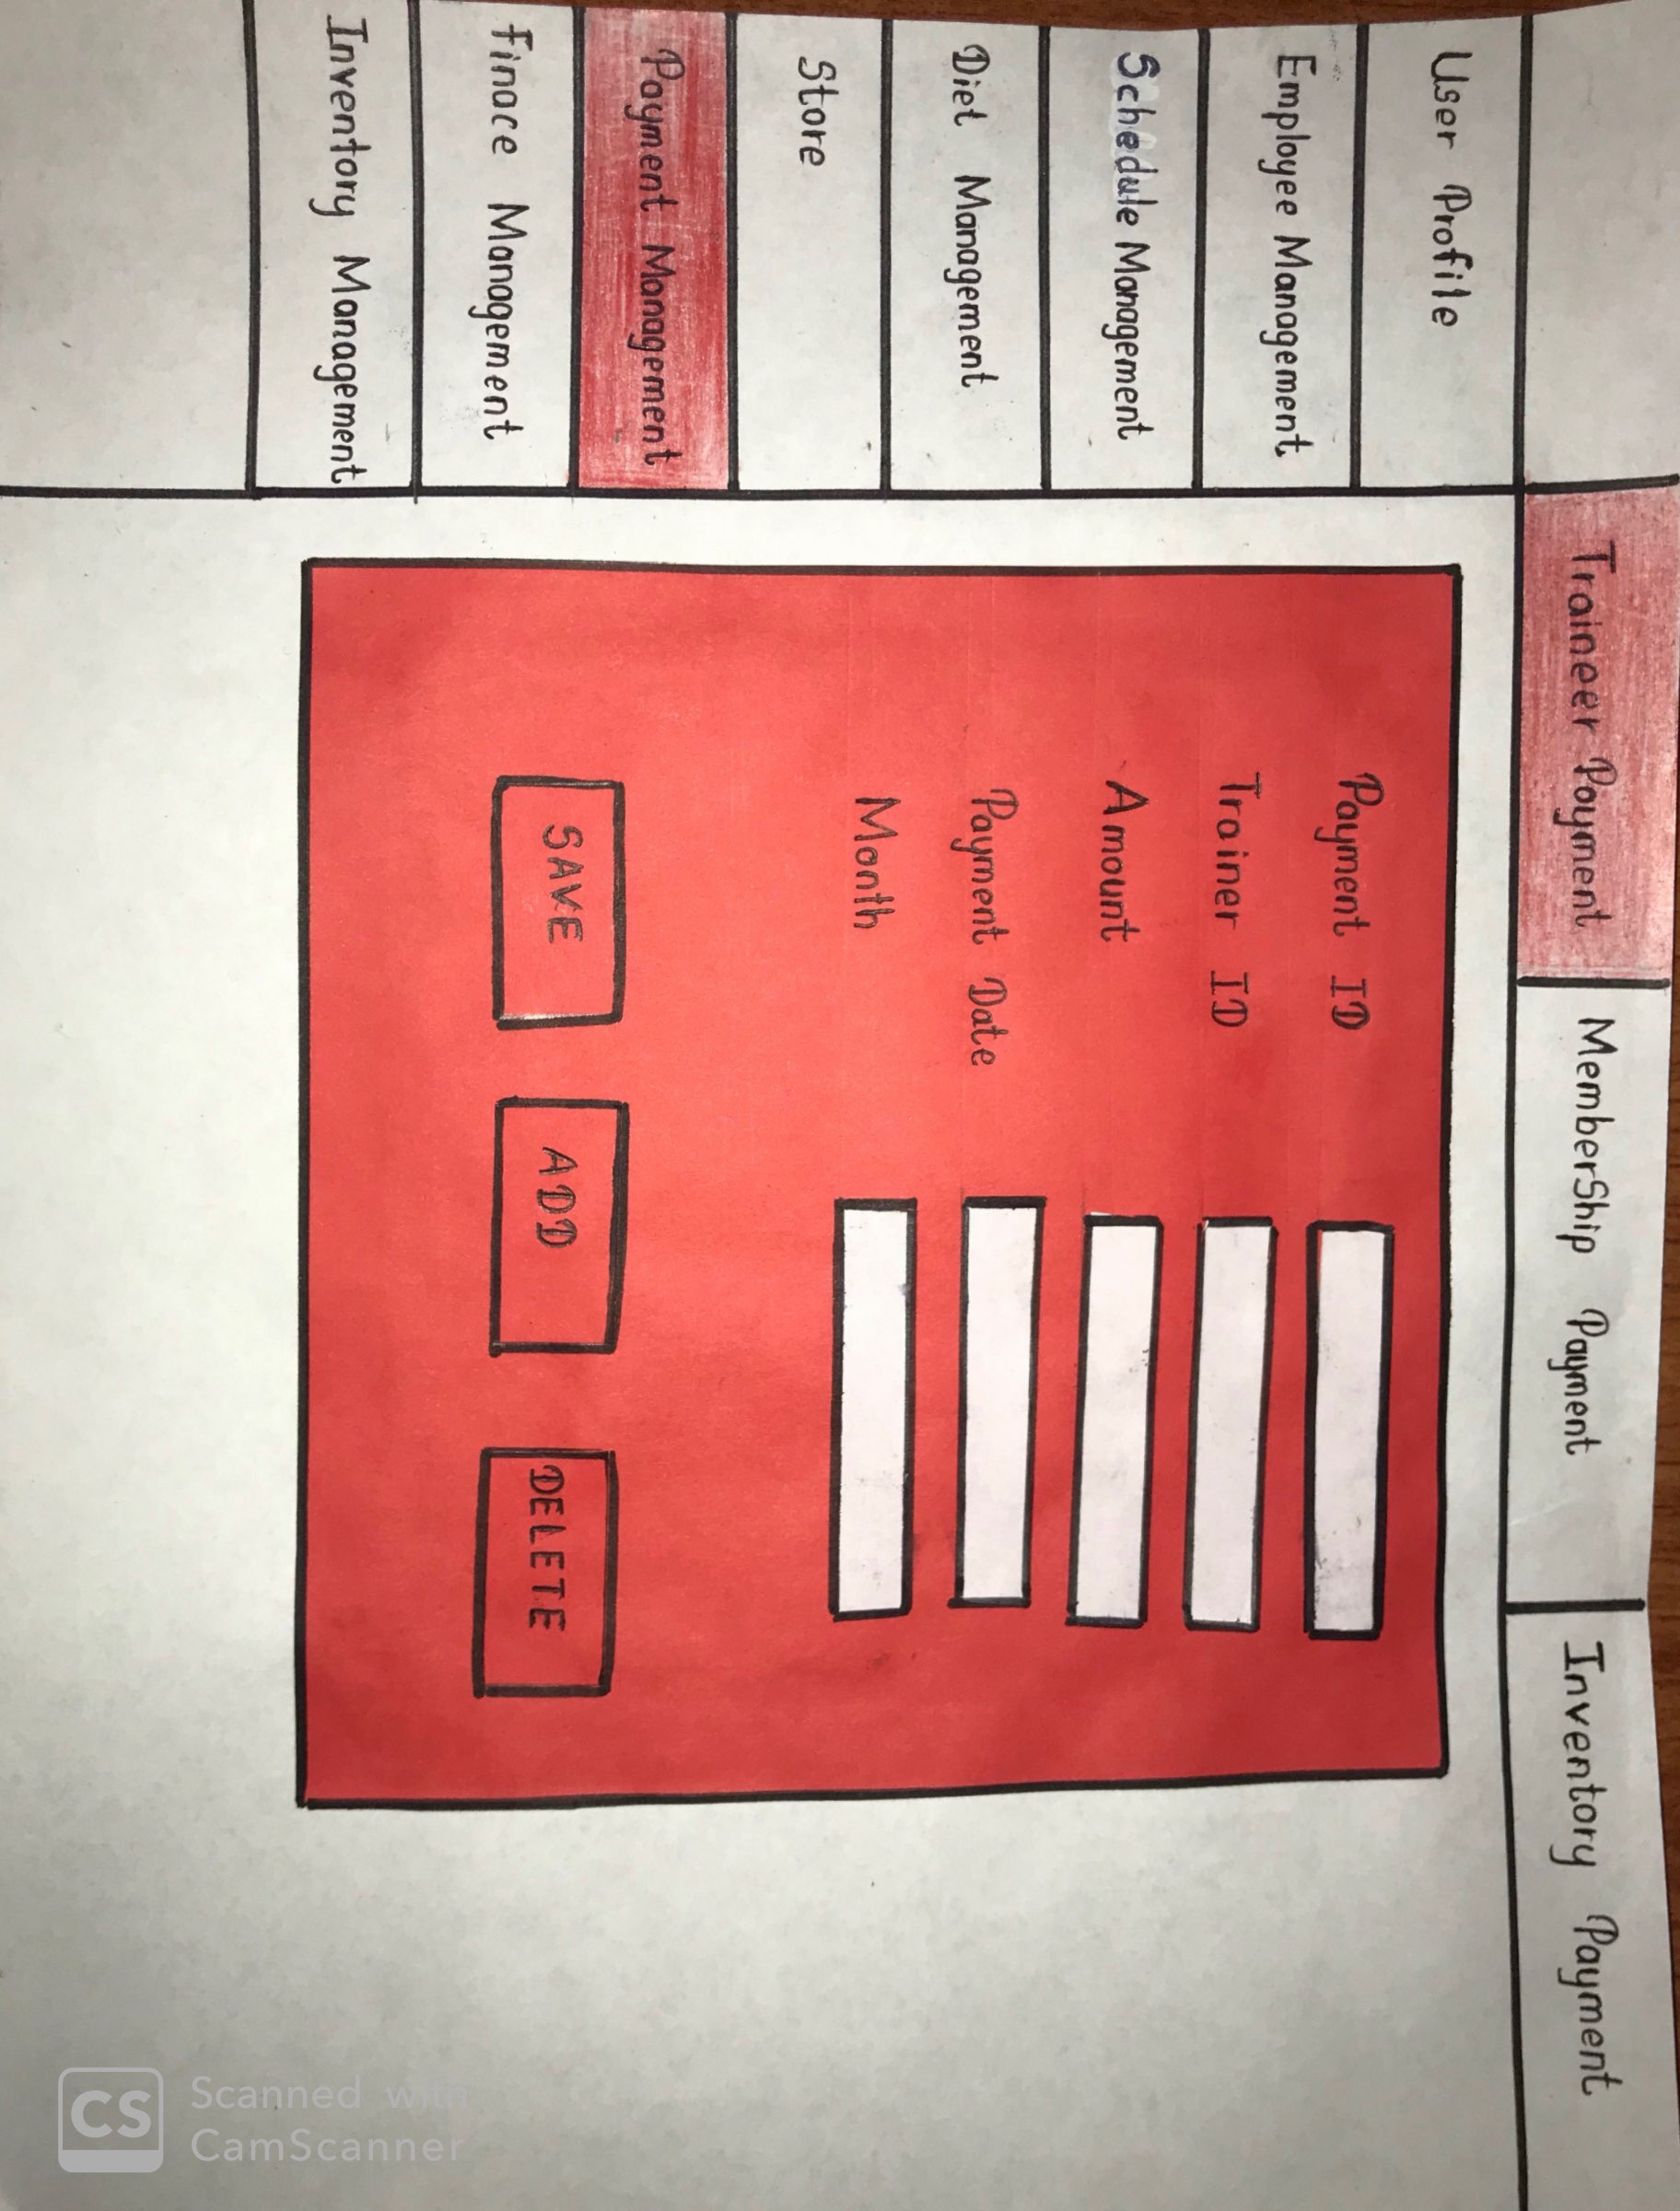 Traineer Payment
MemberShip Payment
Inventory Payment
User Profile
Employee Management
Schedule Management
Diet Management
Store
Payment Management
Finace Management
Inventory Management
Payment ID
Trainer ID
Amount
Payment Date
Month
SAVE
ADD
DELETE
CS
Scanned with
CamScanner